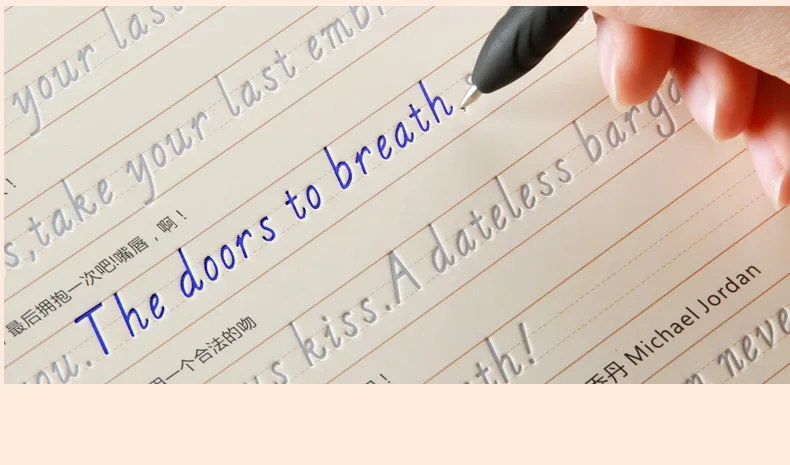 your last
s,take your last emb
最后拥抱一次吧!嘴唇，啊！
The doors to breath
ou. 一个合法的吻
s kiss.A dateless barga
th!
乔丹 Michael Jordan
n neve